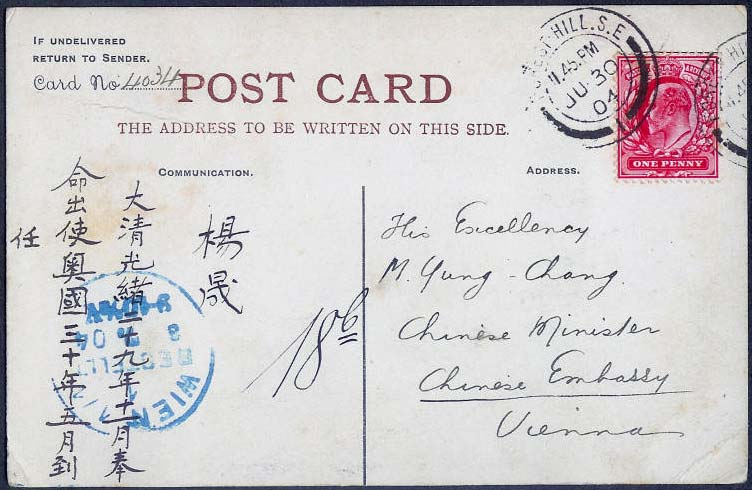 IF UNDELIVERED
RETURN TO SENDER.
Card No. 4034
POST CARD
THE ADDRESS TO BE WRITTEN ON THIS SIDE.
HILL.S.E
11.45.PM
JU 30
04
ONE PENNY
COMMUNICATION.
ADDRESS.
楊晟
大清光緒二十九年十一月奉
命出使奧國三十年五月到
任
WIEN
BESTELLT
3
04
18
His Excellency
M. Yung-Chang.
Chinese Minister
Chinese Embassy
Vienna